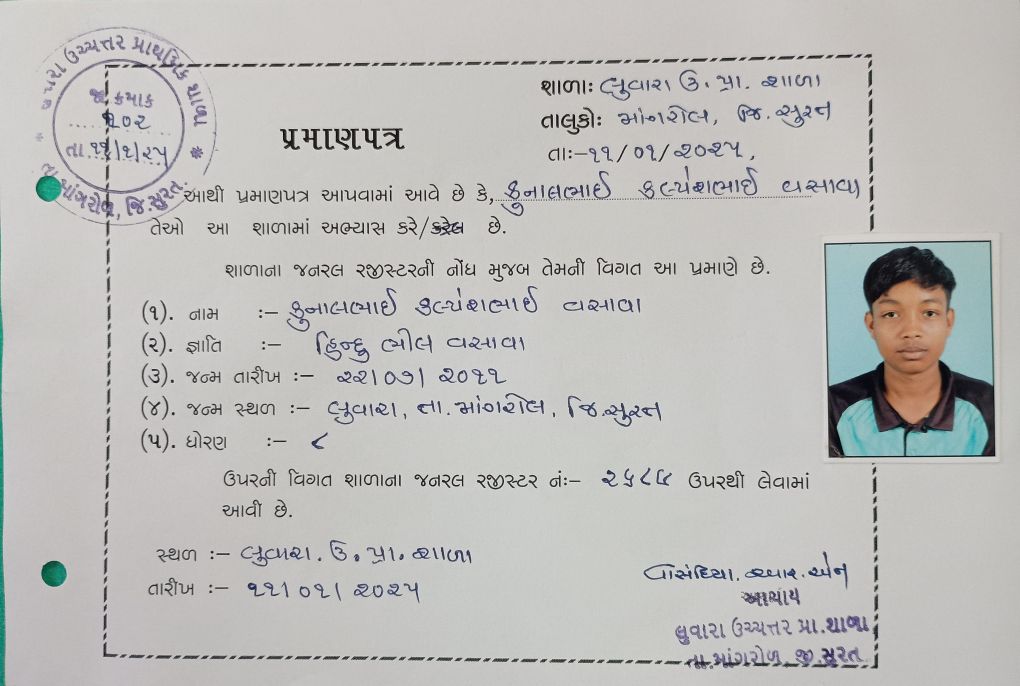 લુવારા ઉચ્ચત્તર પ્રાથમિક શાળા
જા ક્રમાંક
૨૦૨
તા. ૧૧/૧/૨૫
તા. માંગરોળ, જિ.સુરત.
શાળાઃ લુવારા ઉ. પ્રા. શાળા
તાલુકોઃ માંગરોલ, જિ.સુરત
પ્રમાણપત્ર
તાઃ-૧૧/૦૧/૨૦૨૫,
આથી પ્રમાણપત્ર આપવામાં આવે છે કે, કુનાલભાઈ કલ્પેશભાઈ વસાવા
તેઓ આ શાળામાં અભ્યાસ કરે/કરેલ છે.
શાળાના જનરલ રજીસ્ટરની નોંધ મુજબ તેમની વિગત આ પ્રમાણે છે.
(૧). નામ :- કુનાલભાઈ કલ્પેશભાઈ વસાવા
(૨). જ્ઞાતિ :- હિન્દુ ભીલ વસાવા
(૩). જન્મ તારીખ :- ૨૨/૦૭/૨૦૧૧
(૪). જન્મ સ્થળ :- લુવારા, તા.માંગરોલ, જિ.સુરત
(૫). ધોરણ :- ૮
ઉપરની વિગત શાળાના જનરલ રજીસ્ટર નં:- ઉપરથી લેવામાં
આવી છે.
સ્થળ :- લુવારા. ઉ. પ્રા. શાળા
તારીખ :- ૧૧/૦૧/૨૦૨૫
વાસંદિયા. આર. એન
આચાર્ય
લુવારા ઉચ્ચત્તર પ્રા.શાળા
તા.માંગરોળ, જી.સુરત